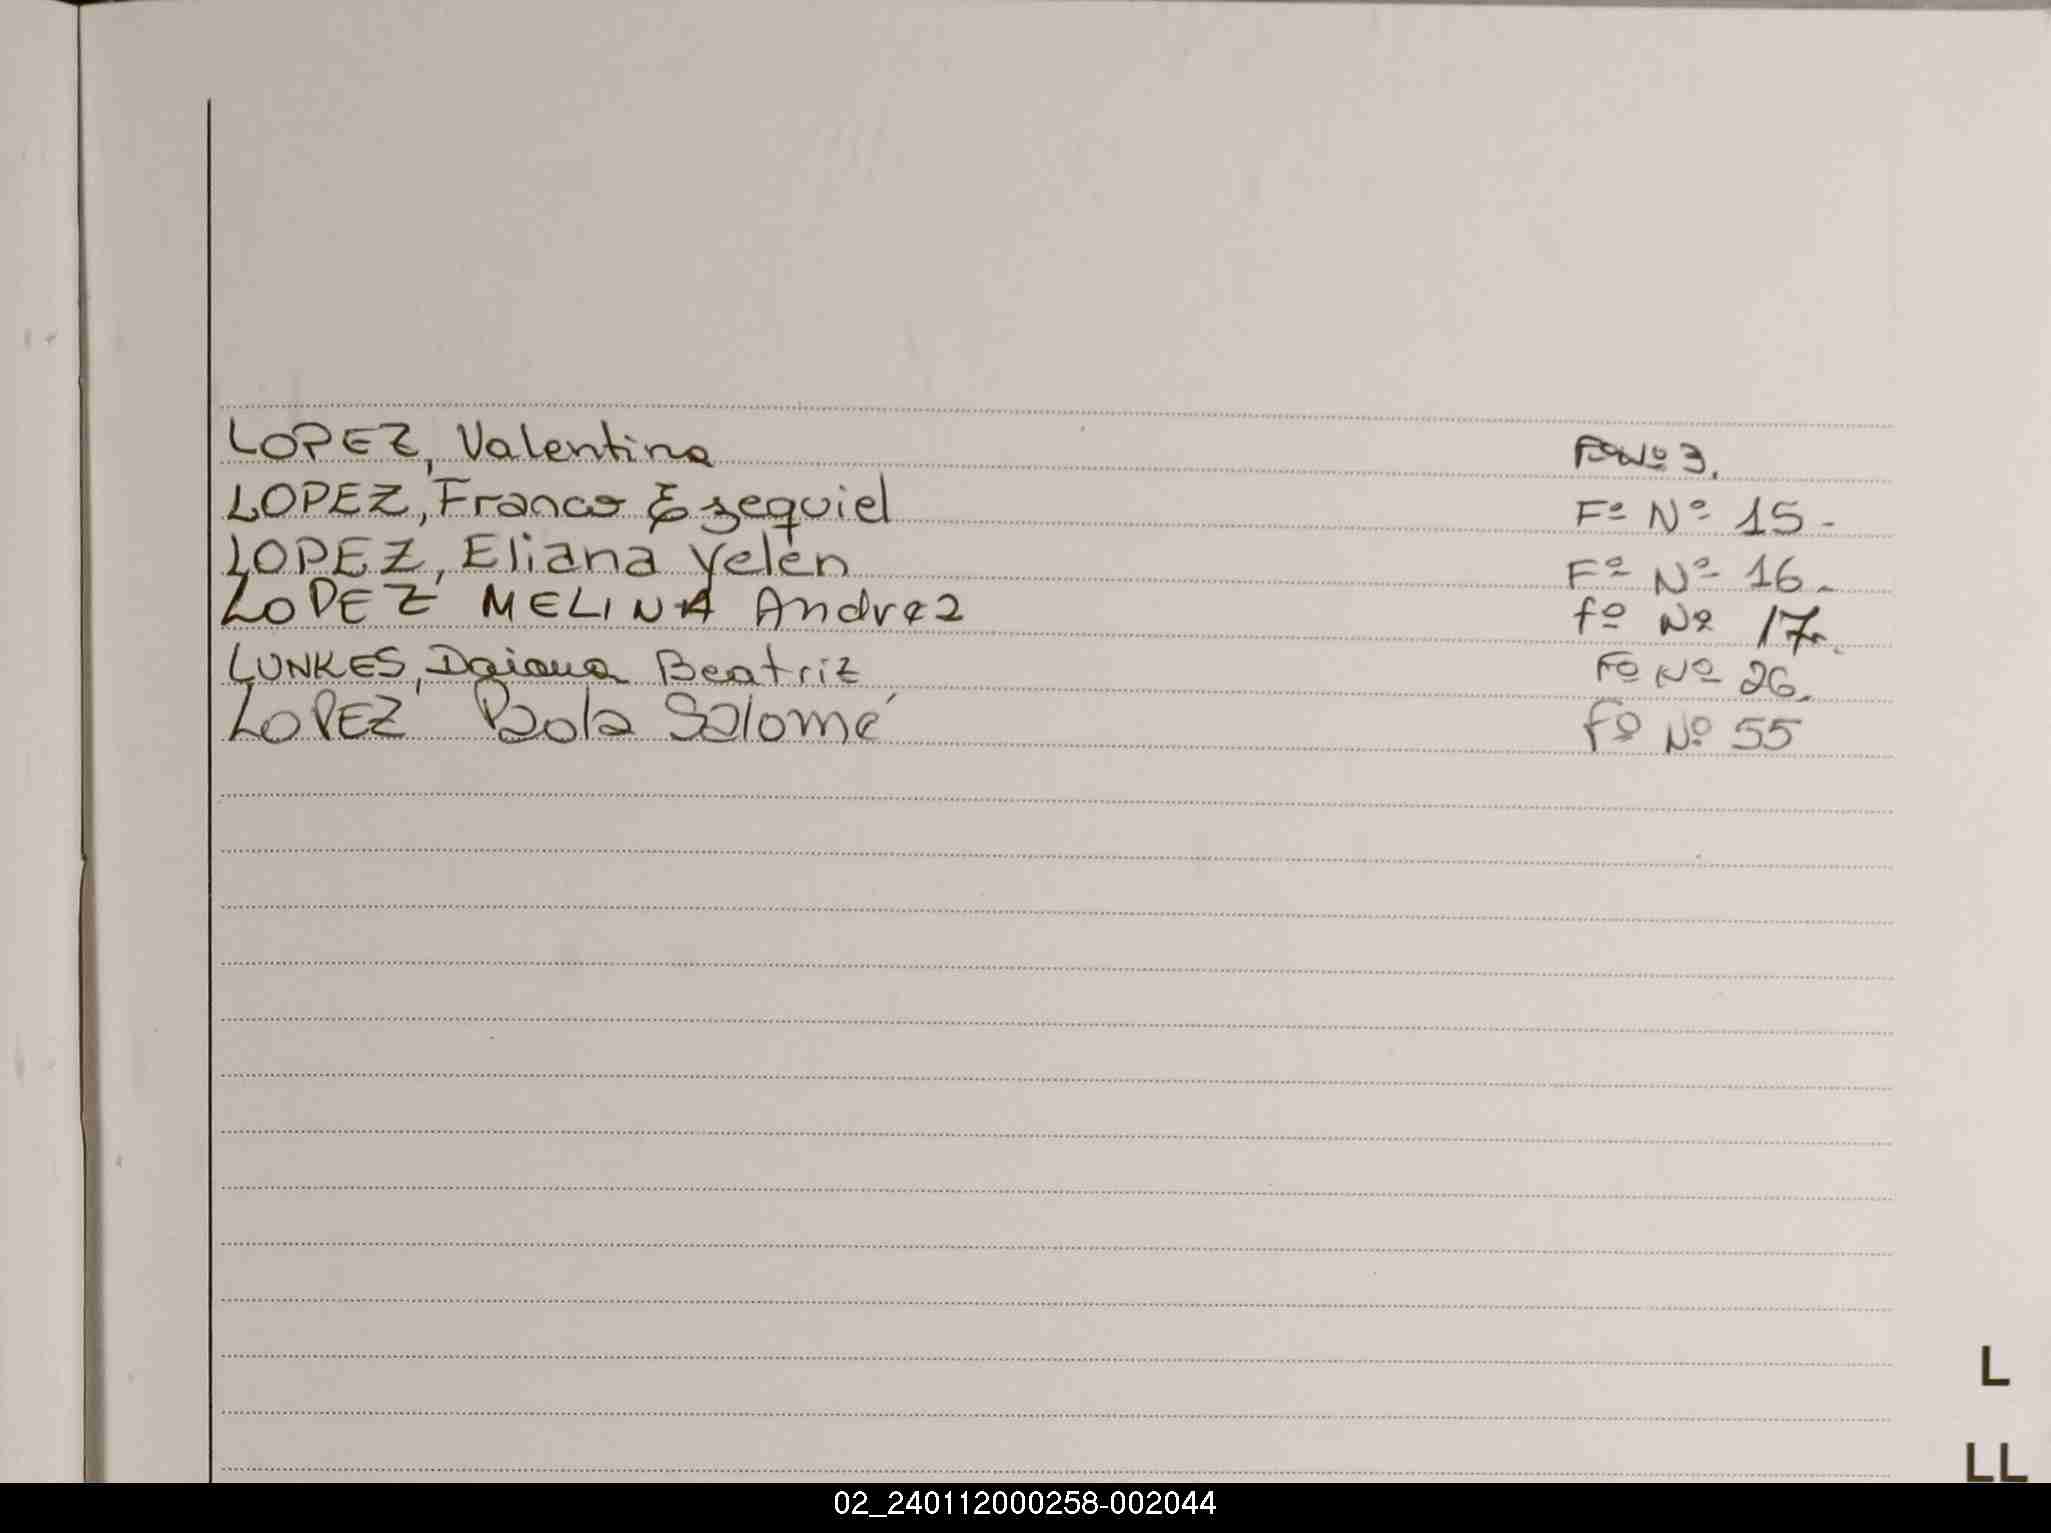 LOPEZ, Valentina Fº Nº 3.
LOPEZ, Franco Ezequiel Fº Nº 15-
LOPEZ, Eliana Yelén Fº Nº 16-
LOPEZ MELINA Andrea fº Nº 17-
LUNKES, Daiana Beatriz Fº Nº 26.
LOPEZ Paola Salomé fº Nº 55
L
LL
02_240112000258-002044